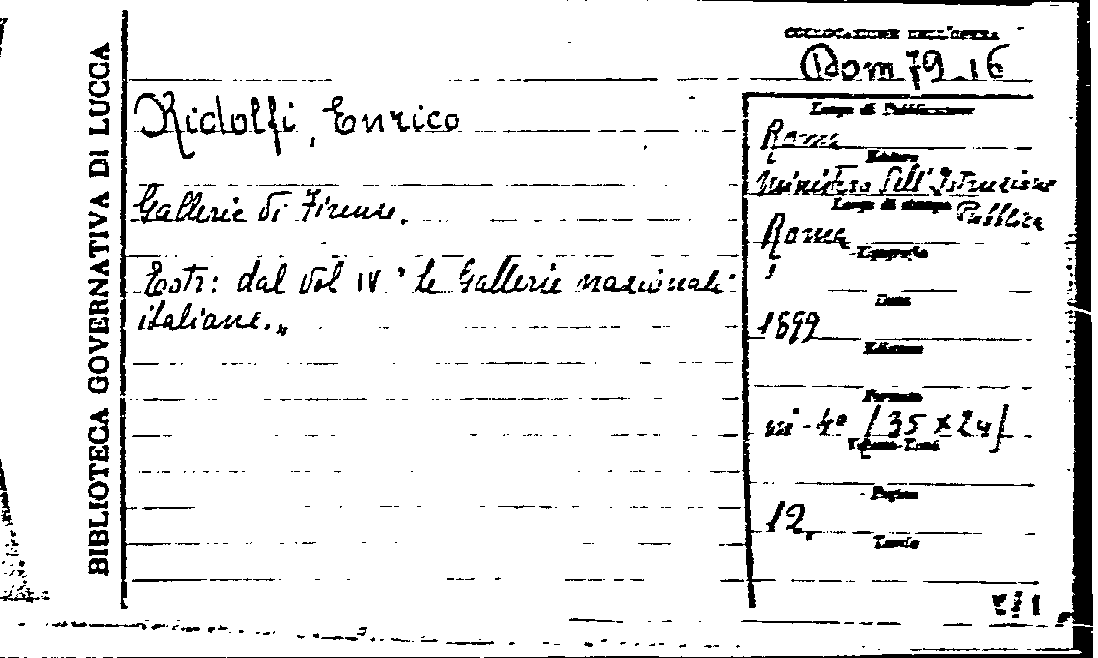 BIBLIOTECA GOVERNATIVA DI LUCCA
COLLOCAZIONE DELL'OPERA
Dom 79.16
Ridolfi, Enrico
Gallerie di Firenze.
Estr: dal Vol IV "Le Gallerie nazionali
italiane.„
Luogo di Pubblicazione
Roma
Editore
Ministero dell'Istruzione
Pubblica
Luogo di stampa
Roma
Tipografia
Data
1899
Edizione
Formato
in-4° [35 x 24]
Volume-Tomi
Pagine
12.
Tavole